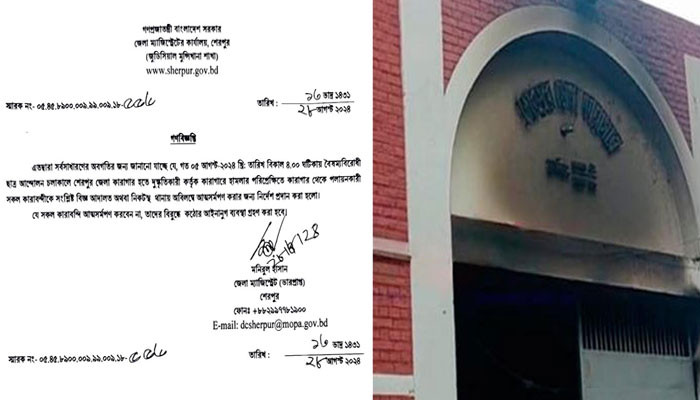 গণপ্রজাতন্ত্রী বাংলাদেশ সরকার
জেলা ম্যাজিস্ট্রেটের কার্যালয়, শেরপুর
(জুডিসিয়াল মুন্সিখানা শাখা)
www.sherpur.gov.bd
স্মারক নং- ০৫.৪৫.৮৯০০.০০৯.৯৯.০০৯.১৮-
তারিখ : ১৩ ভাদ্র ১৪৩১
২৮ আগস্ট ২০২৪
গণবিজ্ঞপ্তি
এতদ্বারা সর্বসাধারণের অবগতির জন্য জানানো যাচ্ছে যে, গত ০৫ আগস্ট-২০২৪ খ্রি: তারিখ বিকাল ৪.০০ ঘটিকায় বৈষম্যবিরোধী
ছাত্র আন্দোলন চলাকালে শেরপুর জেলা কারাগার হতে দুষ্কৃতিকারী কর্তৃক কারাগারে হামলার পরিপ্রেক্ষিতে কারাগার থেকে পলায়নকারী
সকল কারাবন্দীকে সংশ্লিষ্ট বিজ্ঞ আদালত অথবা নিকটস্থ থানায় অবিলম্বে আত্মসমর্পণ করার জন্য নির্দেশ প্রদান করা হলো।
যে সকল কারাবন্দি আত্মসমর্পণ করবেন না, তাদের বিরুদ্ধে কঠোর আইনানুগ ব্যবস্থা গ্রহণ করা হবে।
মনিরুল হাসান
জেলা ম্যাজিস্ট্রেট (ভারপ্রাপ্ত)
শেরপুর
ফোনঃ +৮৮২৯৯৭৭৮১৯০০
E-mail: dcsherpur@mopa.gov.bd
স্মারক নং- ০৫.৪৫.৮৯০০.০০৯.৯৯.০০৯.১৮-
তারিখ : ১৩ ভাদ্র ১৪৩১
২৮ আগস্ট ২০২৪